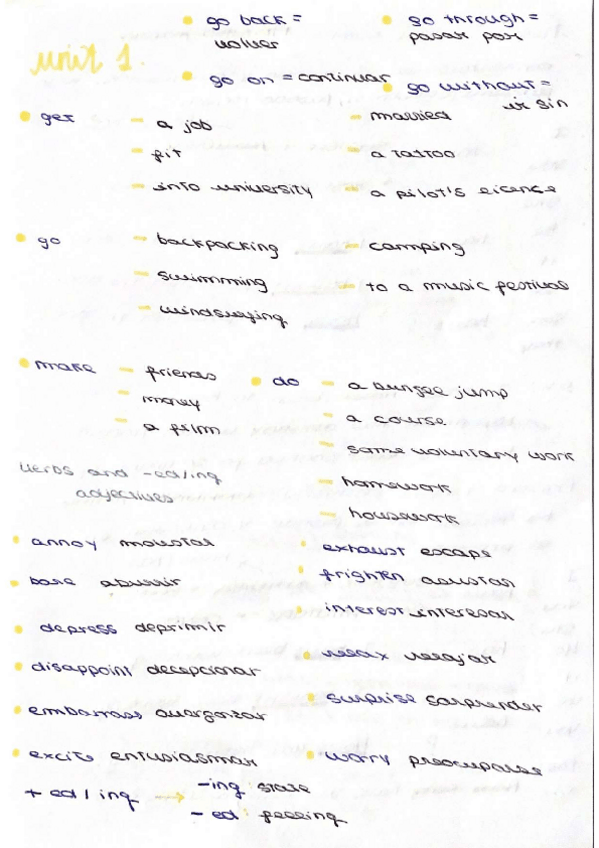 go back = go through =
volver pasar por
unit 1.
go on = continuar go without =
ir sin
get - a job - married
- fit - a tattoo
- into university - a pilot's licence
go - backpacking - camping
- swimming - to a music festival
- windsurfing
make - friends do - a bungee jump
- money - a course
- a film - some voluntary work
verbs and -ed/ing - homework
adjectives - housework
annoy molestar exhaust escape
bore aburrir frighten asustar
interest interesar
depress deprimir
disappoint decepcionar relax relajar
embarrass avergonzar surprise sorprender
excite entusiasmar worry preocuparse
+ ed / ing → -ing: state
- ed: feeling